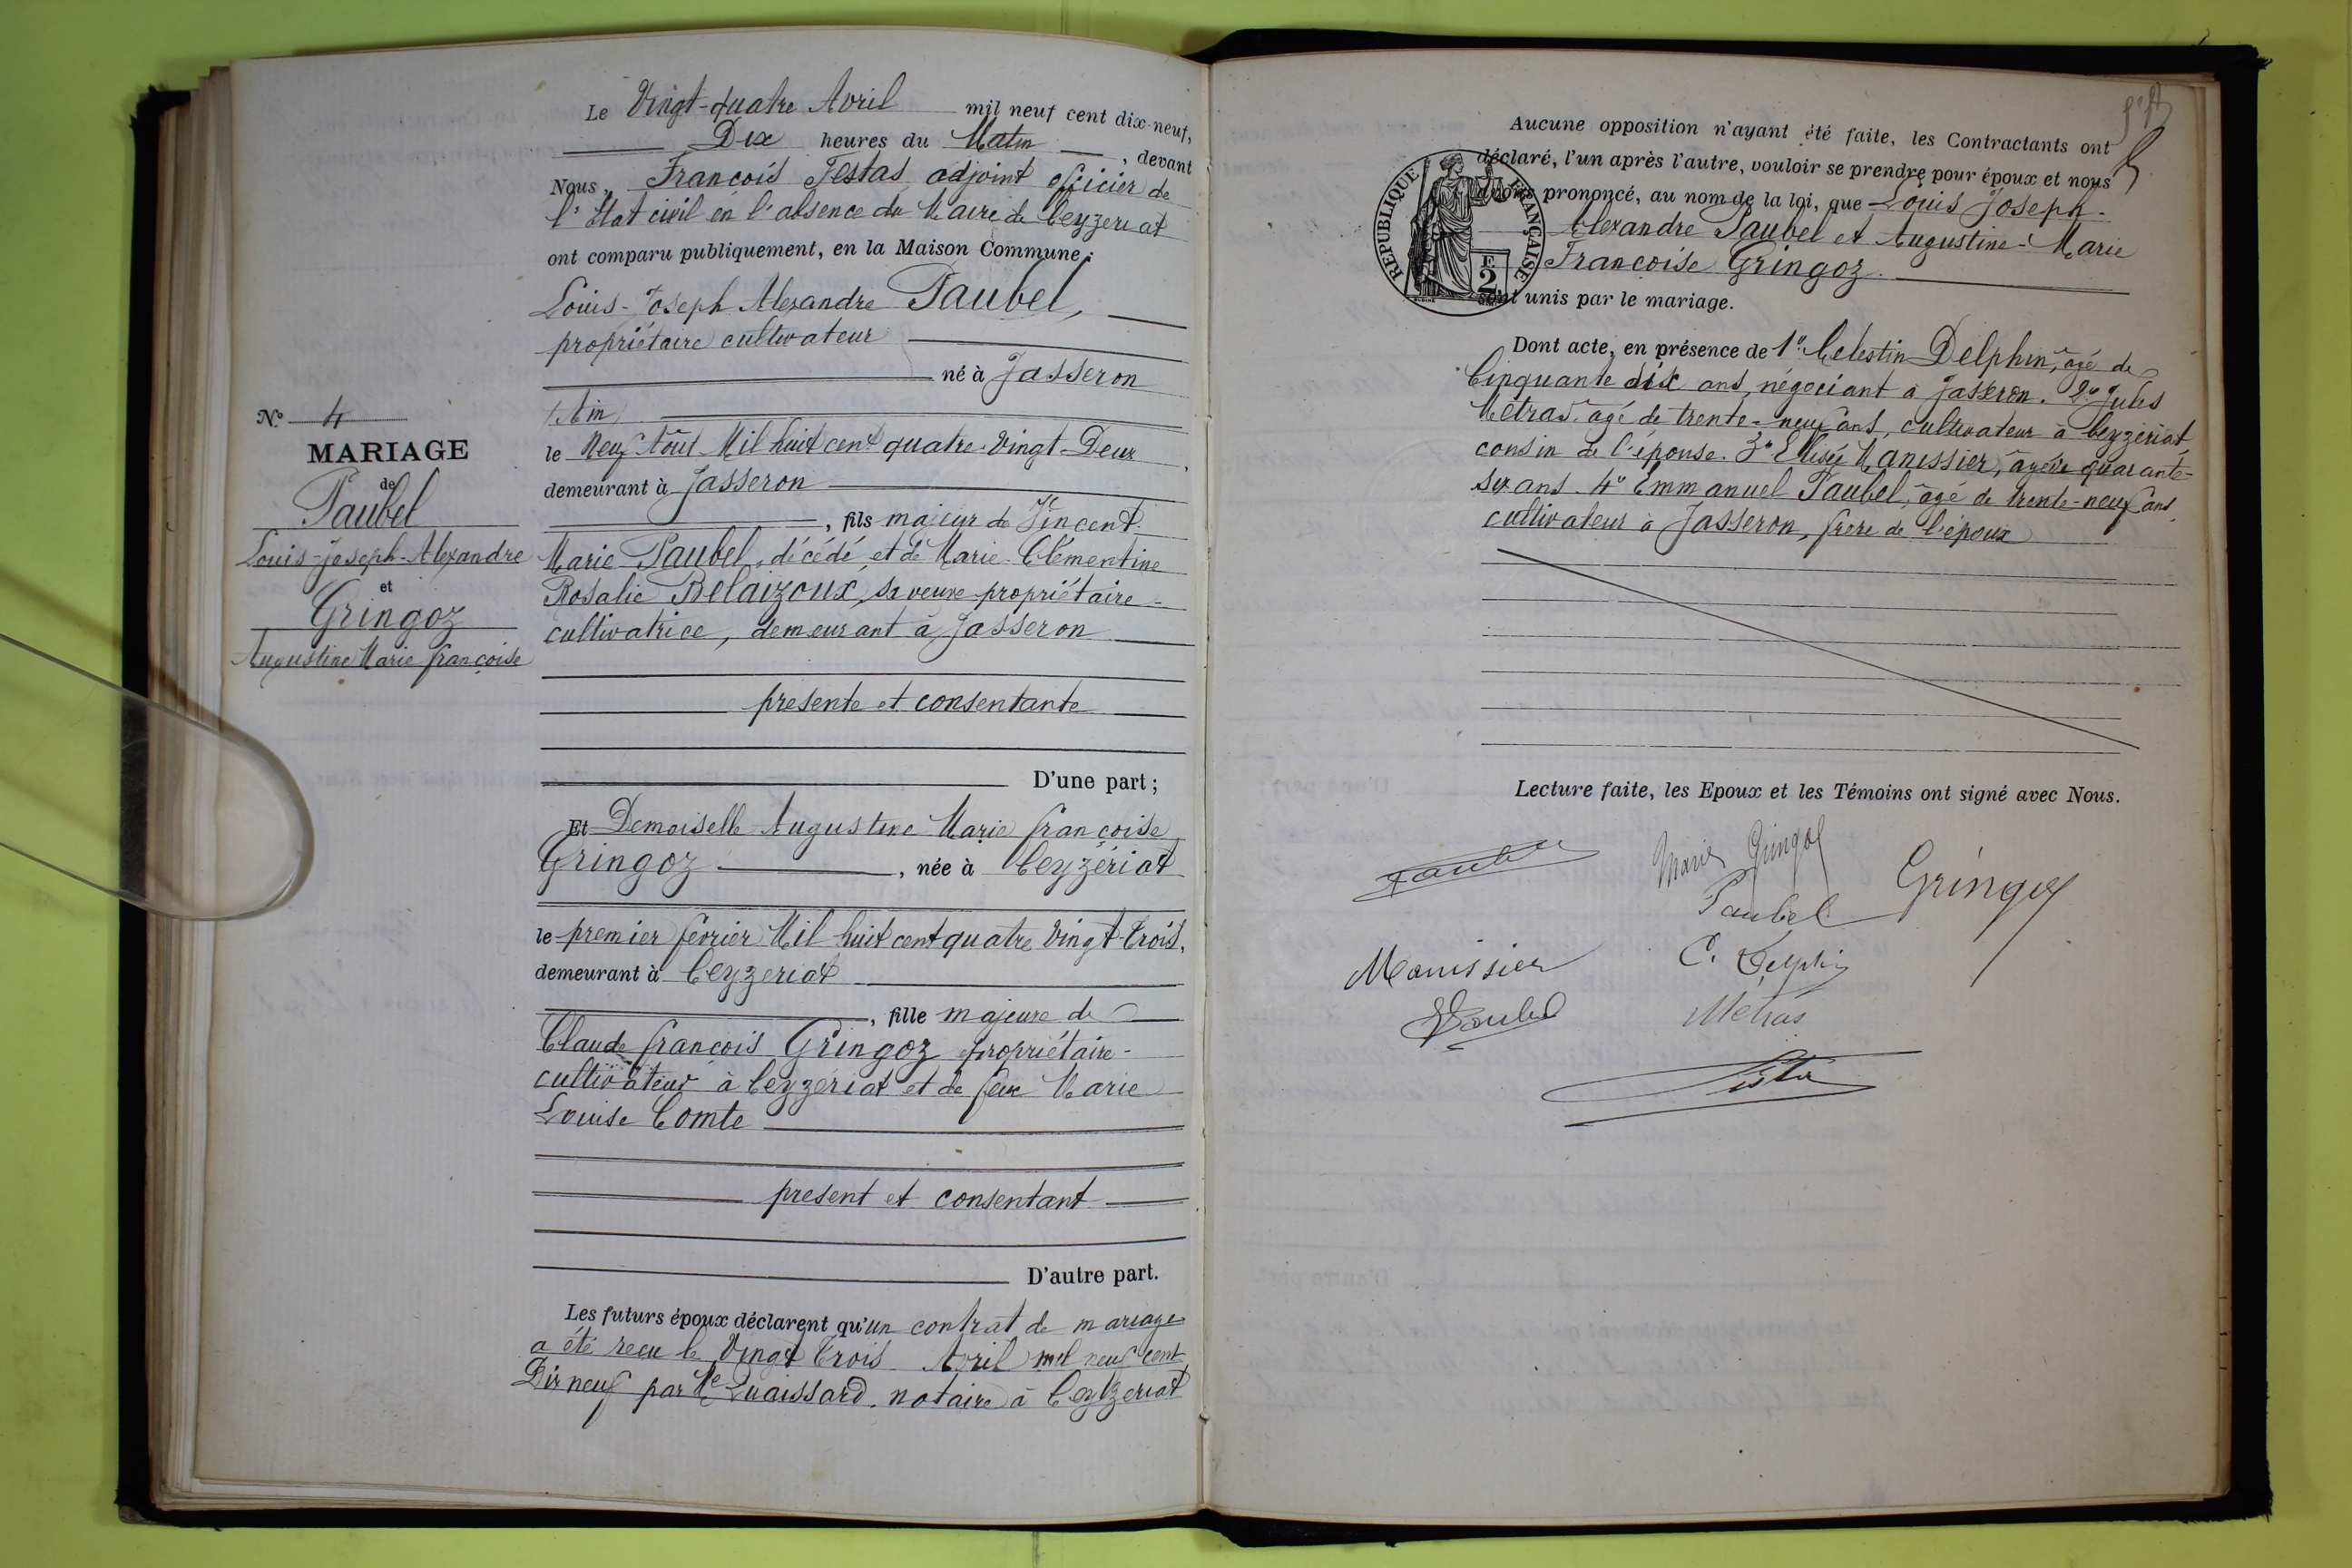 Le Vingt-quatre Avril mil neuf cent dix-neuf,
Dix heures du Matin, devant
Nous, François Testas adjoint officier de
l'Etat civil en l'absence du Maire de Ceyzeriat
ont comparu publiquement, en la Maison Commune:
Louis-Joseph Alexandre Paubel,
propriétaire cultivateur
né à Jasseron
(Ain)
le Neuf Août Mil huit cent quatre-Vingt-Deux,
demeurant à Jasseron
, fils majeur de Vincent
Marie Paubel, décédé, et de Marie-Clémentine
Rosalie Belaizoux, sa veuve propriétaire-
cultivatrice, demeurant à Jasseron
presente et consentante
D'une part;
N° 4
MARIAGE
de
Paubel
Louis-Joseph-Alexandre
et
Gringoz
Augustine Marie françoise
Et Demoiselle Augustine Marie françoise
Gringoz, née à Ceyzériat
le premier février Mil huit cent quatre Vingt Trois,
demeurant à Ceyzeriat
, fille majeure de
Claude françois Gringoz propriétaire-
cultivateur à Ceyzériat et de feue Marie
Louise Comte
present et consentant
D'autre part.
Les futurs époux déclarent qu'un contrat de mariage
a été reçu le Vingt Trois Avril mil neuf cent
Dix neuf par Me Quaissard, notaire à Ceyzeriat
Aucune opposition n'ayant été faite, les Contractants ont
déclaré, l'un après l'autre, vouloir se prendre pour époux et nous
avons prononcé, au nom de la loi, que Louis Joseph-
Alexandre Paubel et Augustine-Marie
Françoise Gringoz
sont unis par le mariage.
REPUBLIQUE FRANÇAISE
F.
2
Dont acte, en présence de 1° Celestin Delphin, âgé de
Cinquante six ans, négociant à Jasseron. 2° Jules
Métras âgé de trente-neuf ans, cultivateur à Ceyzériat,
cousin de l'épouse. 3° Elisée Manissier, âgé de quarante-
six ans. 4° Emmanuel Paubel, âgé de trente-neuf ans,
cultivateur à Jasseron, frère de l'époux
Lecture faite, les Epoux et les Témoins ont signé avec Nous.
Paubel
Marie Gringoz
Gringoz
Paubel
Manissier
C. Delphin
Paubel
Métras